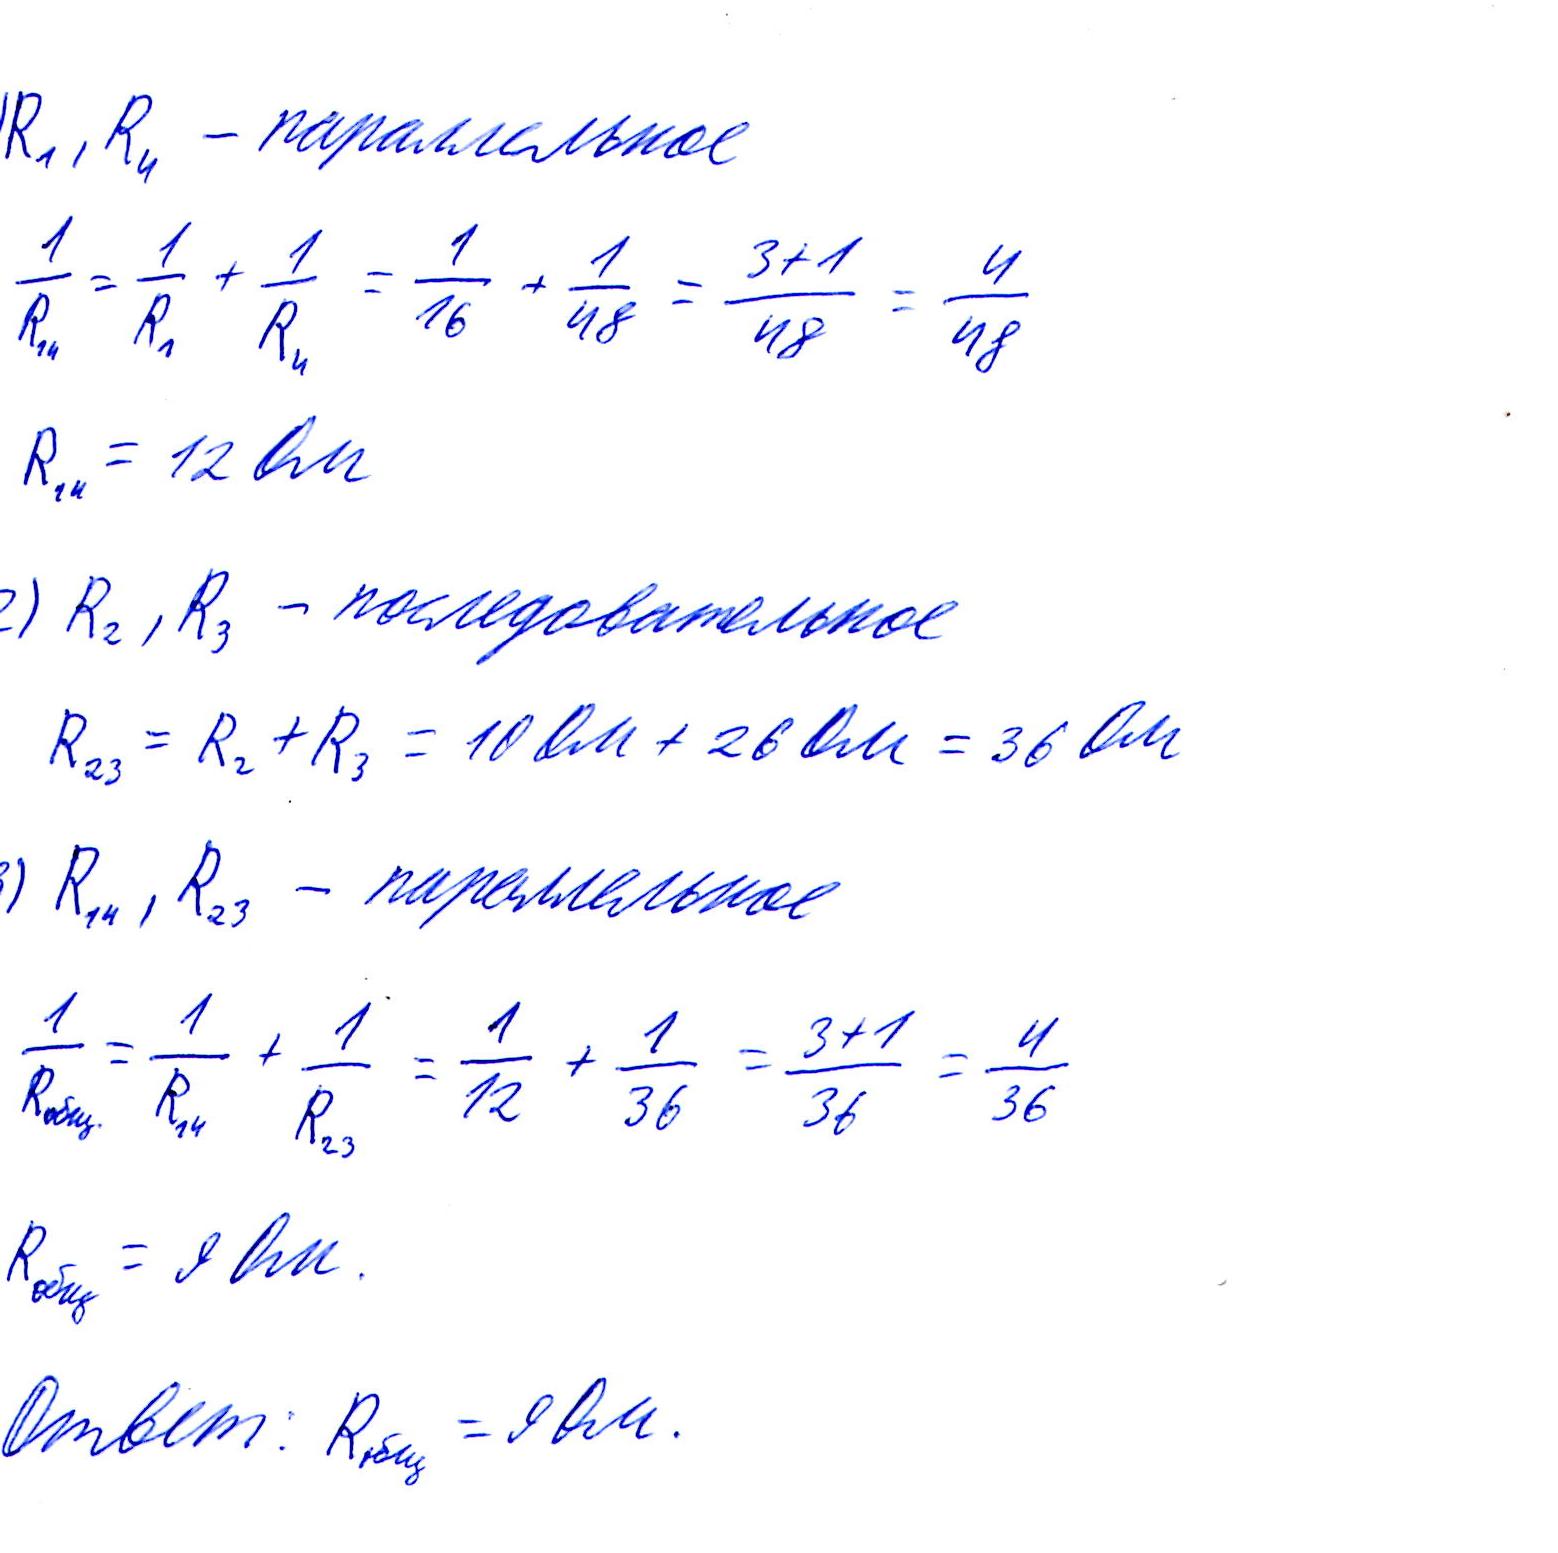 1) R₁, R₄ – параллельное
1/R₁₄ = 1/R₁ + 1/R₄ = 1/16 + 1/48 = 3+1/48 = 4/48
R₁₄ = 12 Ом
2) R₂, R₃ – последовательное
R₂₃ = R₂ + R₃ = 10 Ом + 26 Ом = 36 Ом
3) R₁₄, R₂₃ – параллельное
1/Rобщ. = 1/R₁₄ + 1/R₂₃ = 1/12 + 1/36 = 3+1/36 = 4/36
Rобщ = 9 Ом.
Ответ: Rобщ = 9 Ом.